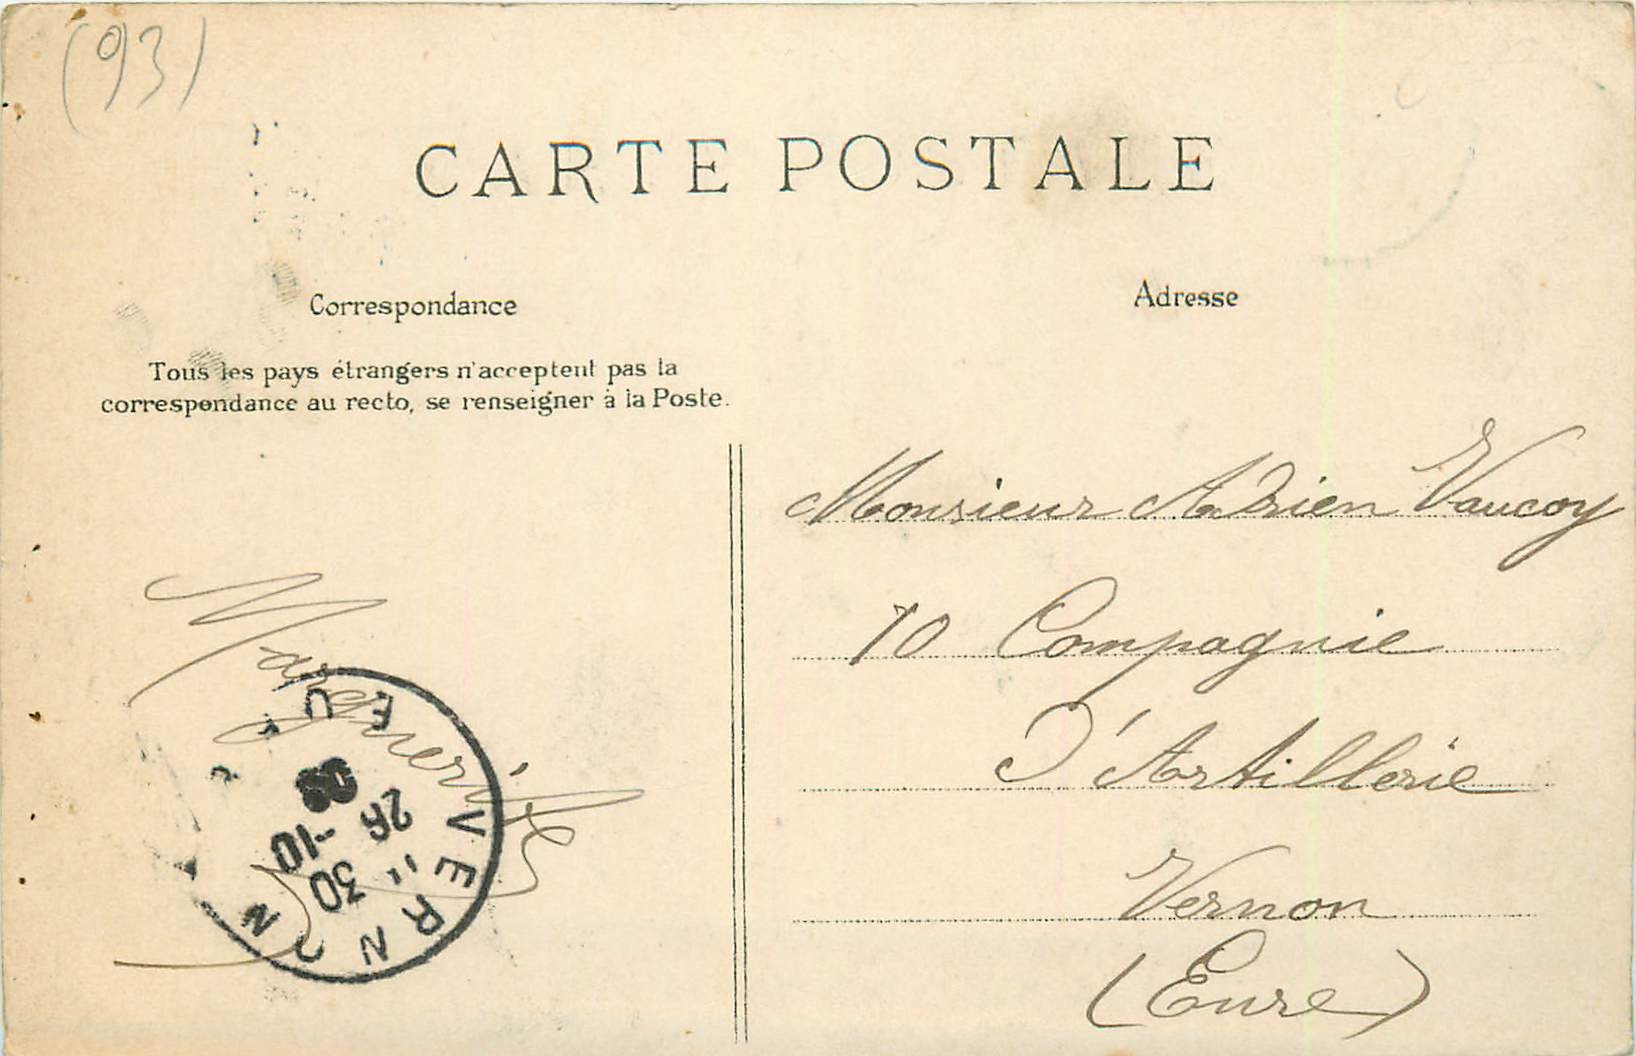 (93)
CARTE POSTALE
Correspondance
Tous les pays étrangers n'acceptent pas la
correspondance au recto, se renseigner à la Poste.
Adresse
Monsieur Adrien Vaucoy
10 Compagnie
d'Artillerie
Vernon
(Eure)
Marguerite
VERNON
EU
11 30
26 -10
08